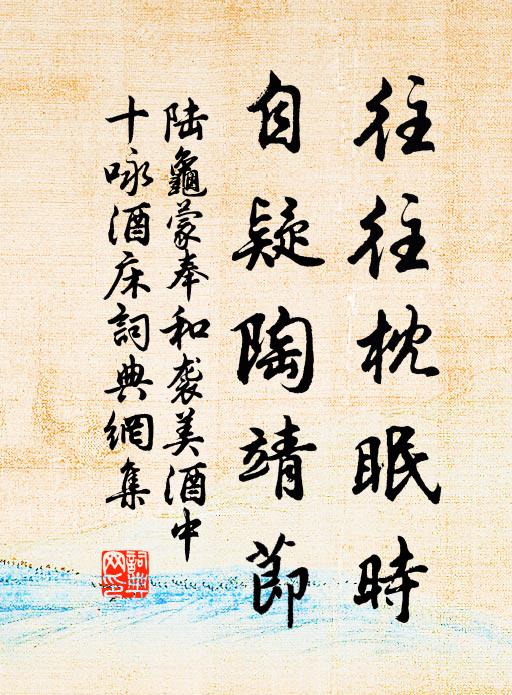 往往枕眠時
自疑陶靖節
陸龜蒙奉和袭美酒中
十咏酒床詞典網集